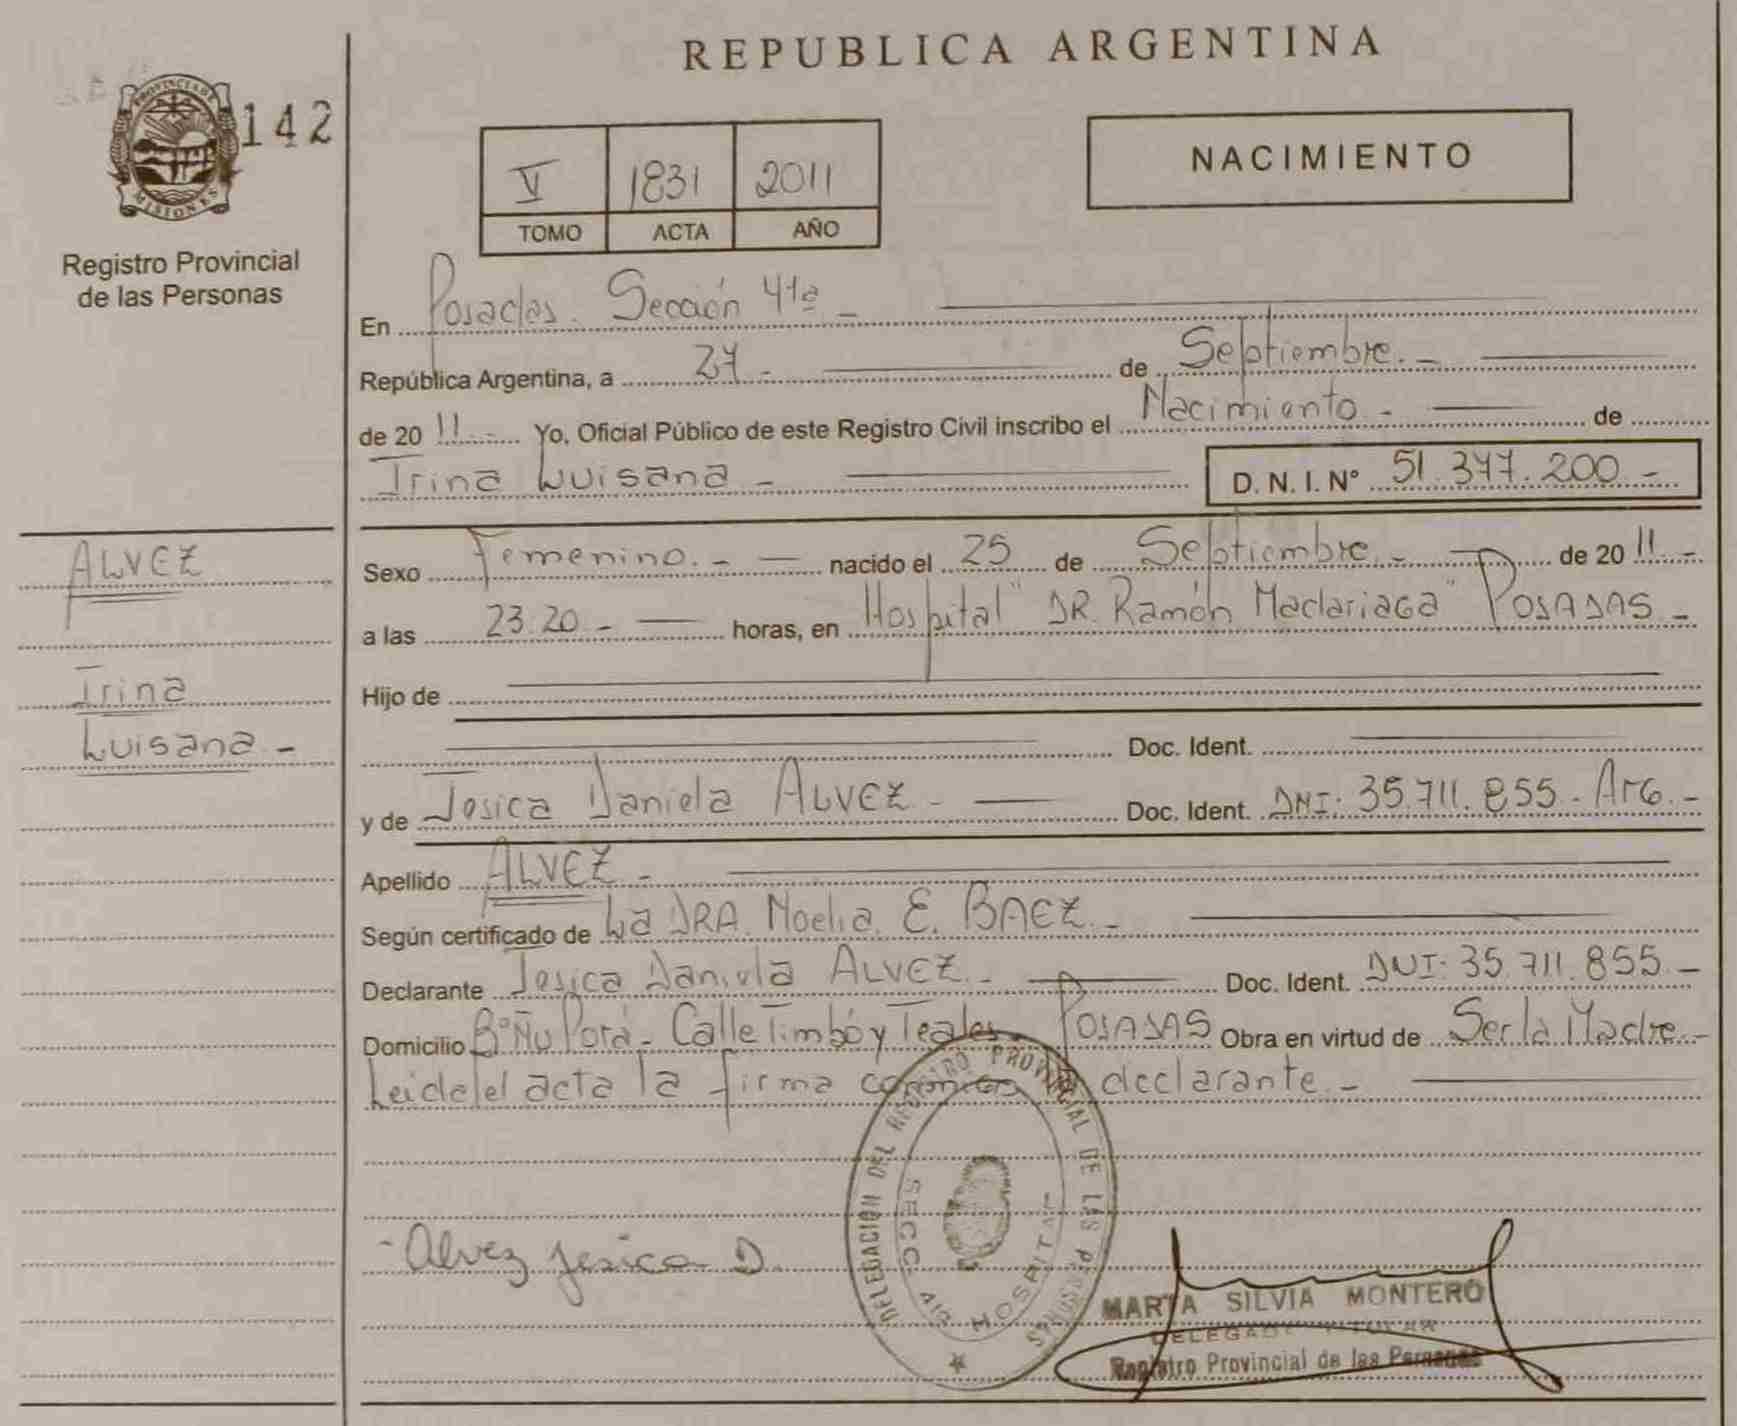 REPUBLICA ARGENTINA
PROVINCIA DE
MISIONES
142
Registro Provincial
de las Personas
V 1831 2011
TOMO ACTA AÑO
NACIMIENTO
En Posadas. Sección 41ª -
República Argentina, a 27 - de Septiembre. -
de 20 11 - Yo, Oficial Público de este Registro Civil inscribo el Nacimiento - de
Irina Luisana - D. N. I. Nº 51.377.200 -
ALVEZ
Irina
Luisana -
Sexo Femenino. - nacido el 25 de Septiembre. - de 20 11. -
a las 23.20 - horas, en Hospital "DR. Ramón Madariaga" POSADAS -
Hijo de
Doc. Ident.
y de Jesica Daniela ALVEZ - Doc. Ident. DNI: 35.711.855 - Arg. -
Apellido ALVEZ -
Según certificado de La DRA. Noelia E. BAEZ. -
Declarante Jesica Daniela ALVEZ - Doc. Ident. DNI: 35.711.855 -
Domicilio Bº Ñu Porá - Calle Timbó y Teales - POSADAS Obra en virtud de Ser la Madre -
Leida el acta la firma conmigo la declarante. -
DELEGACION DEL REGISTRO PROVINCIAL DE LAS PERSONAS
SECC. 41ª HOSPITAL
- Alvez Jesica D.
MARTA SILVIA MONTERO
DELEGADA TITULAR
Registro Provincial de las Personas